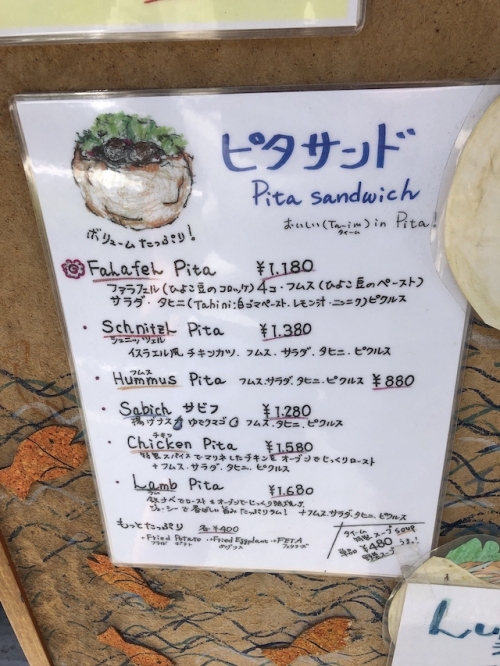 ピタサンド
Pita sandwich
おいしい(Ta-im) in Pita!
タイーム
ボリュームたっぷり!
Falafel Pita ¥1.180
ファラフェル(ひよこ豆のコロッケ)4コ・フムス(ひよこ豆のペースト)
サラダ・タヒニ(Tahini:白ゴマペースト.レモン汁.ニンニク)ピクルス
・Schnitzel Pita ¥1.380
シュニッツェル
イスラエル風チキンカツ.フムス.サラダ.タヒニ.ピクルス
フムス
・Hummus Pita フムス.サラダ.タヒニ.ピクルス ¥880
・Sabich サビフ ¥1.280
揚げナス ゆでタマゴ フムス.タヒニ.ピクルス
チキン
・Chicken Pita ¥1.580
特製スパイスでマリネしたチキンをオーブンでじっくりロースト
+フムス.サラダ.タヒニ.ピクルス
・Lamb Pita ¥1.680
ラム
オーブンでじっくり
ジューシーで香ばしい旨みたっぷりラム! +フムス.サラダ.タヒニ.ピクルス
もっとたっぷり 各¥400
+Fried Potato .+Fried Eggplant .+FETA
フライドポテト フェタチーズ
タイーム
特製スープSOUP
単品 ¥480 うまい!